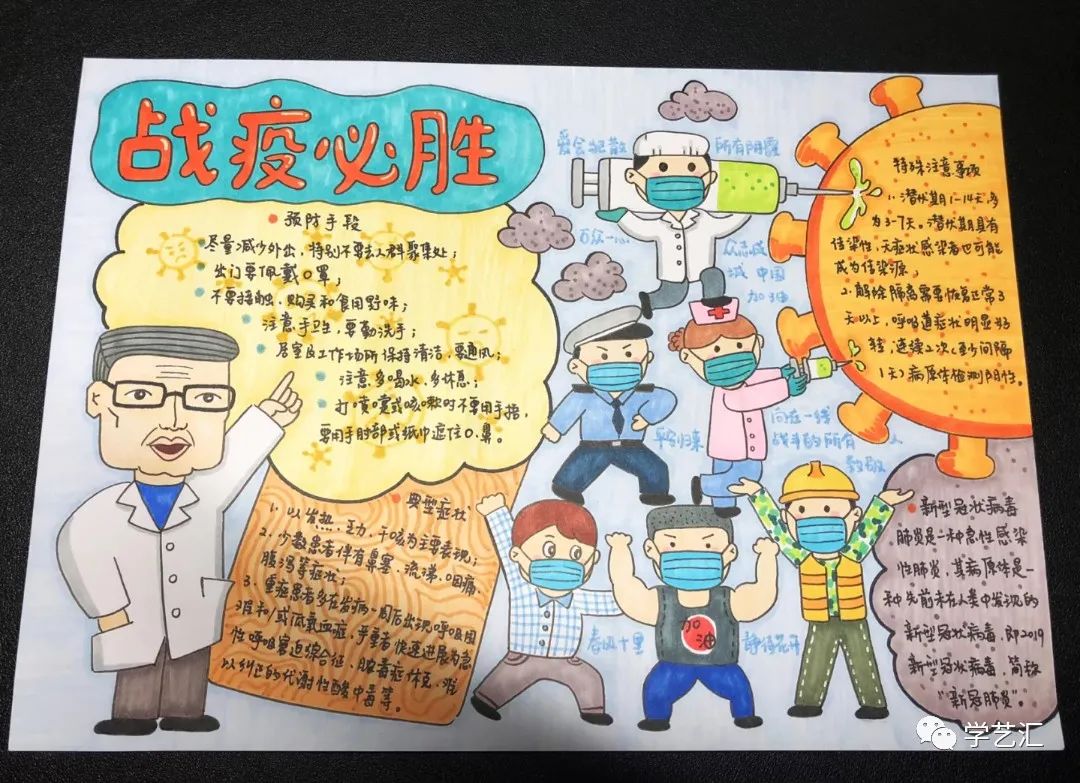 战疫必胜
预防手段
尽量减少外出，特别不要去人群聚集处；
出门要佩戴口罩；
不要接触、购买和食用野味；
注意手卫生，要勤洗手；
居室及工作场所保持清洁，要通风；
注意多喝水、多休息；
打喷嚏或咳嗽时不要用手捂，
要用手肘部或纸巾遮住口鼻。
典型症状
1、以发热、乏力、干咳为主要表现；
2、少数患者伴有鼻塞、流涕、咽痛、
腹泻等症状；
3、重症患者多在发病一周后出现呼吸困
难和/或低氧血症，严重者快速进展为急
性呼吸窘迫综合征、脓毒症休克、难
以纠正的代谢性酸中毒等。
爱会驱散
所有阴霾
万众一心
众志成
城 中国
加油
平安归来
向在一线
战斗的所有人
致敬
加油
春风十里
静待花开
特殊注意事项
1、潜伏期1-14天，多
为3-7天。潜伏期具有
传染性，无症状感染者也可能
成为传染源；
2、解除隔离需要恢复正常3
天以上，呼吸道症状明显好
转，连续2次（至少间隔
1天）病原体检测阴性。
新型冠状病毒
肺炎是一种急性感染
性肺炎，其病原体是一
种先前未在人类中发现的
新型冠状病毒，即2019
新型冠状病毒，简称
“新冠肺炎”。
学艺汇